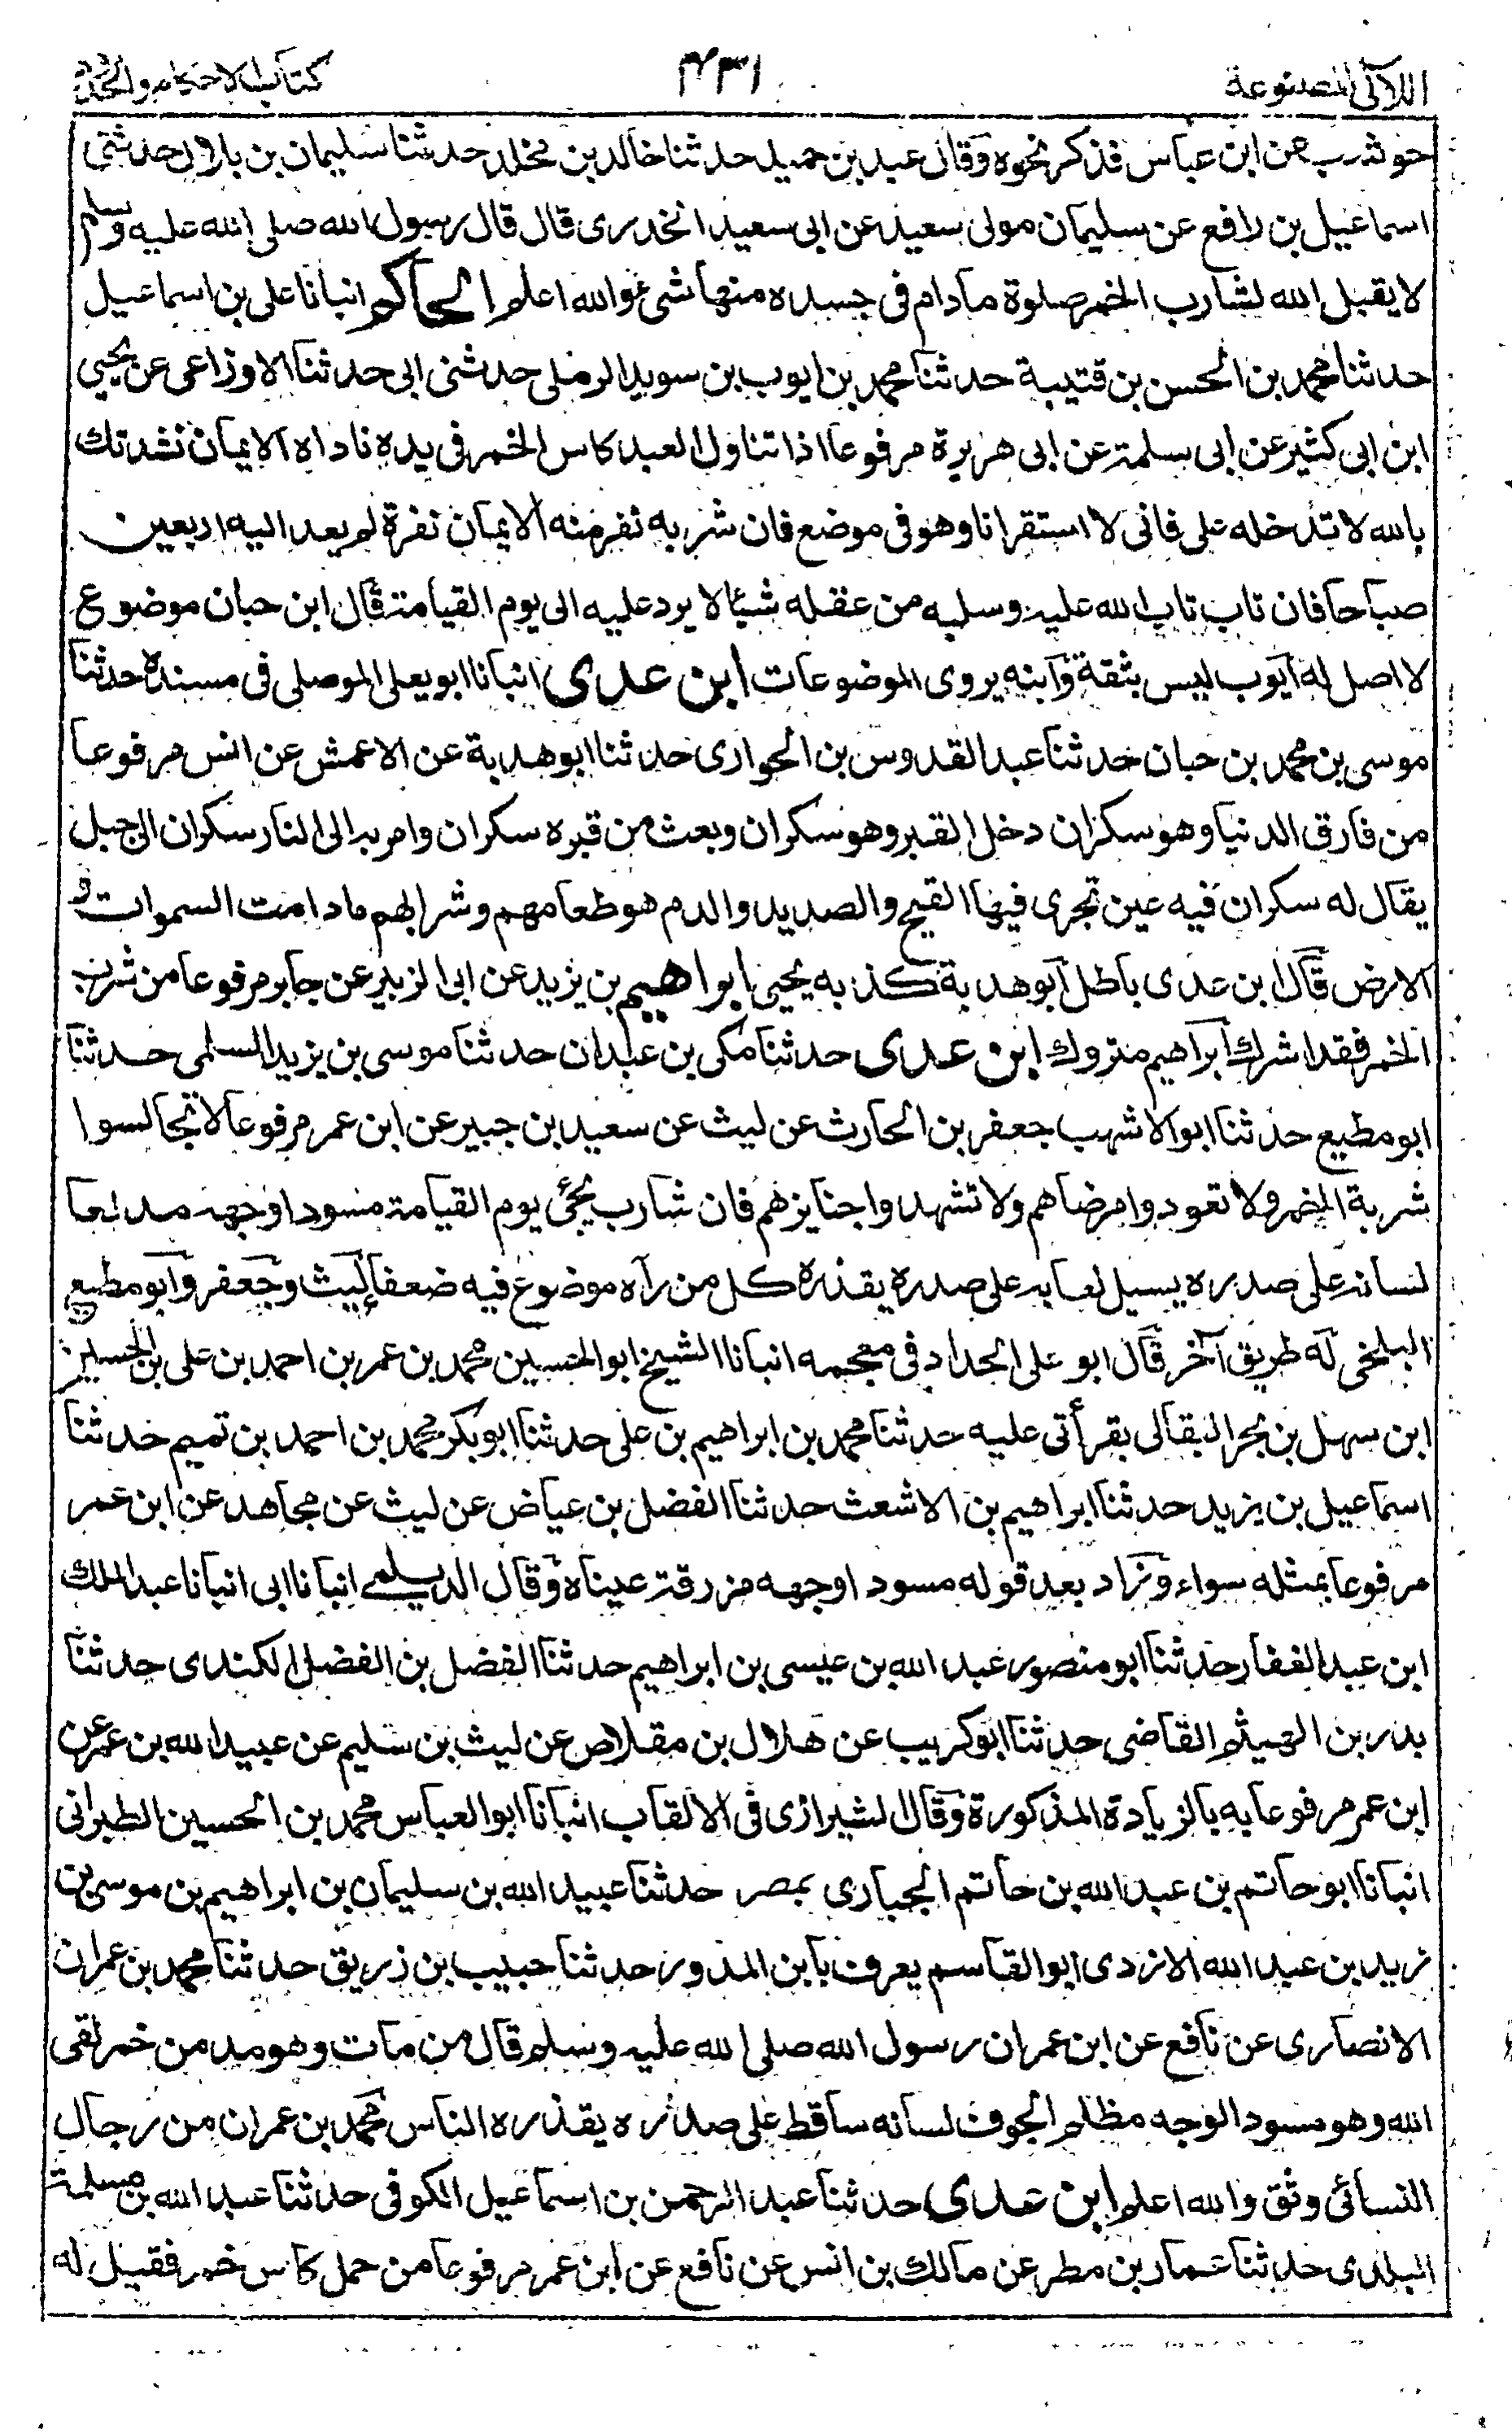 اللآلى المصنوعة
۴۳۱
كتاب الاحكام والحدود
حوشب عن ابن عباس فذكر نحوه وقال عبد بن حميد حدثنا خالد بن مخلد حدثنا سليمان بن بلال حدثنى
اسماعيل بن رافع عن سليمان مولى سعيد عن ابى سعيد الخدرى قال قال رسول الله صلى الله عليه وسلم
لا يقبل الله لشارب الخمر صلوة مادام فى جسده منها شىء والله اعلم الحاكم انبانا على بن اسماعيل
حدثنا محمد بن الحسن بن قتيبة حدثنا محمد بن ايوب بن سويد الرملى حدثنى ابى حدثنا الاوزاعى عن يحيى
ابن ابى كثير عن ابى سلمة عن ابى هريرة مرفوعا اذا تناول العبد كاس الخمر فى يده ناداه الايمان نشدتك
بالله لا تدخله على فانى لا استقر انا وهو فى موضع فان شربه نفر منه الايمان نفرة لم يعد اليه اربعين
صباحا فان تاب تاب الله عليه وسلبه من عقله شيئا لا يرد عليه الى يوم القيامة قال ابن حبان موضوع
لا اصل له ايوب ليس بثقة وابنه يروى الموضوعات ابن عدى انبانا ابو يعلى الموصلى فى مسنده حدثنا
موسى بن محمد بن حبان حدثنا عبد القدوس بن الحوارى حدثنا ابو هدبة عن الاعمش عن انس مرفوعا
من فارق الدنيا وهو سكران دخل القبر وهو سكران وبعث من قبره سكران وامر به الى النار سكران الى جبل
يقال له سكران فيه عين تجرى فيها القيح والصديد والدم هو طعامهم وشرابهم مادامت السموات و
الارض قال ابن عدى باطل ابو هدبة كذبه يحيى ابراهيم بن يزيد عن ابى الزبير عن جابر مرفوعا من شرب
الخمر فقد اشرك ابراهيم متروك ابن عدى حدثنا مكى بن عبدان حدثنا موسى بن يزيد السلمى حدثنا
ابو مطيع حدثنا ابو الاشهب جعفر بن الحارث عن ليث عن سعيد بن جبير عن ابن عمر مرفوعا لا تجالسوا
شربة الخمر ولا تعودوا مرضاهم ولا تشهدوا جنايزهم فان شارب يجئ يوم القيامة مسودا وجهه مدلعا
لسانه على صدره يسيل لعابه على صدره يقذره كل من رآه موضوع فيه ضعفا ليث وجعفر وابو مطيع
البلخى له طريق آخر قال ابو على الحداد فى معجمه انبانا الشيخ ابو الحسين محمد بن عمر بن احمد بن على بن الحسين
ابن سهل بن بحر البقالى بقرأتى عليه حدثنا محمد بن ابراهيم بن على حدثنا ابو بكر محمد بن احمد بن تميم حدثنا
اسماعيل بن يزيد حدثنا ابراهيم بن الاشعث حدثنا الفضل بن عياض عن ليث عن مجاهد عن ابن عمر
مرفوعا بمثله سواء وزاد بعد قوله مسودا وجهه مزرقة عيناه وقال الديلمى انبانا ابى انبانا عبد الملك
ابن عبد الغفار حدثنا ابو منصور عبد الله بن عيسى بن ابراهيم حدثنا الفضل بن الفضل الكندى حدثنا
بدر بن الهيثم القاضى حدثنا ابو كريب عن هلال بن مقلاص عن ليث بن سليم عن عبيد الله بن عمر عن
ابن عمر مرفوعا به بالزيادة المذكورة وقال الشيرازى فى الالقاب انبانا ابو العباس محمد بن الحسين الطبرانى
انبانا ابو حاتم بن عبد الله بن حاتم الجبارى بمصر حدثنا عبيد الله بن سليمان بن ابراهيم بن موسى بن
زيد بن عبد الله الازدى ابو القاسم يعرف بابن المدور حدثنا حبيب بن زريق حدثنا محمد بن عمران
الانصارى عن نافع عن ابن عمر ان رسول الله صلى الله عليه وسلم قال من مات وهو مدمن خمر لقى
الله وهو مسود الوجه مظلم الجوف لسانه ساقط على صدره يقذره الناس محمد بن عمران من رجال
النسائى وثق والله اعلم ابن عدى حدثنا عبد الرحمن بن اسماعيل الكوفى حدثنا عبد الله بن مسلمة
البلدى حدثنا عمار بن مطر عن مالك بن انس عن نافع عن ابن عمر مرفوعا من حمل كاس خمر فقيل له